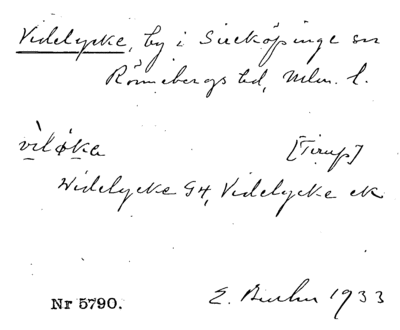 Videlycke, by i Sireköpinge sn
Rönnebergs hd, Mlm. l.
vìløka [Tirup]
Widelycke GH, Videlycke ek
Nr 5790. E. 1933